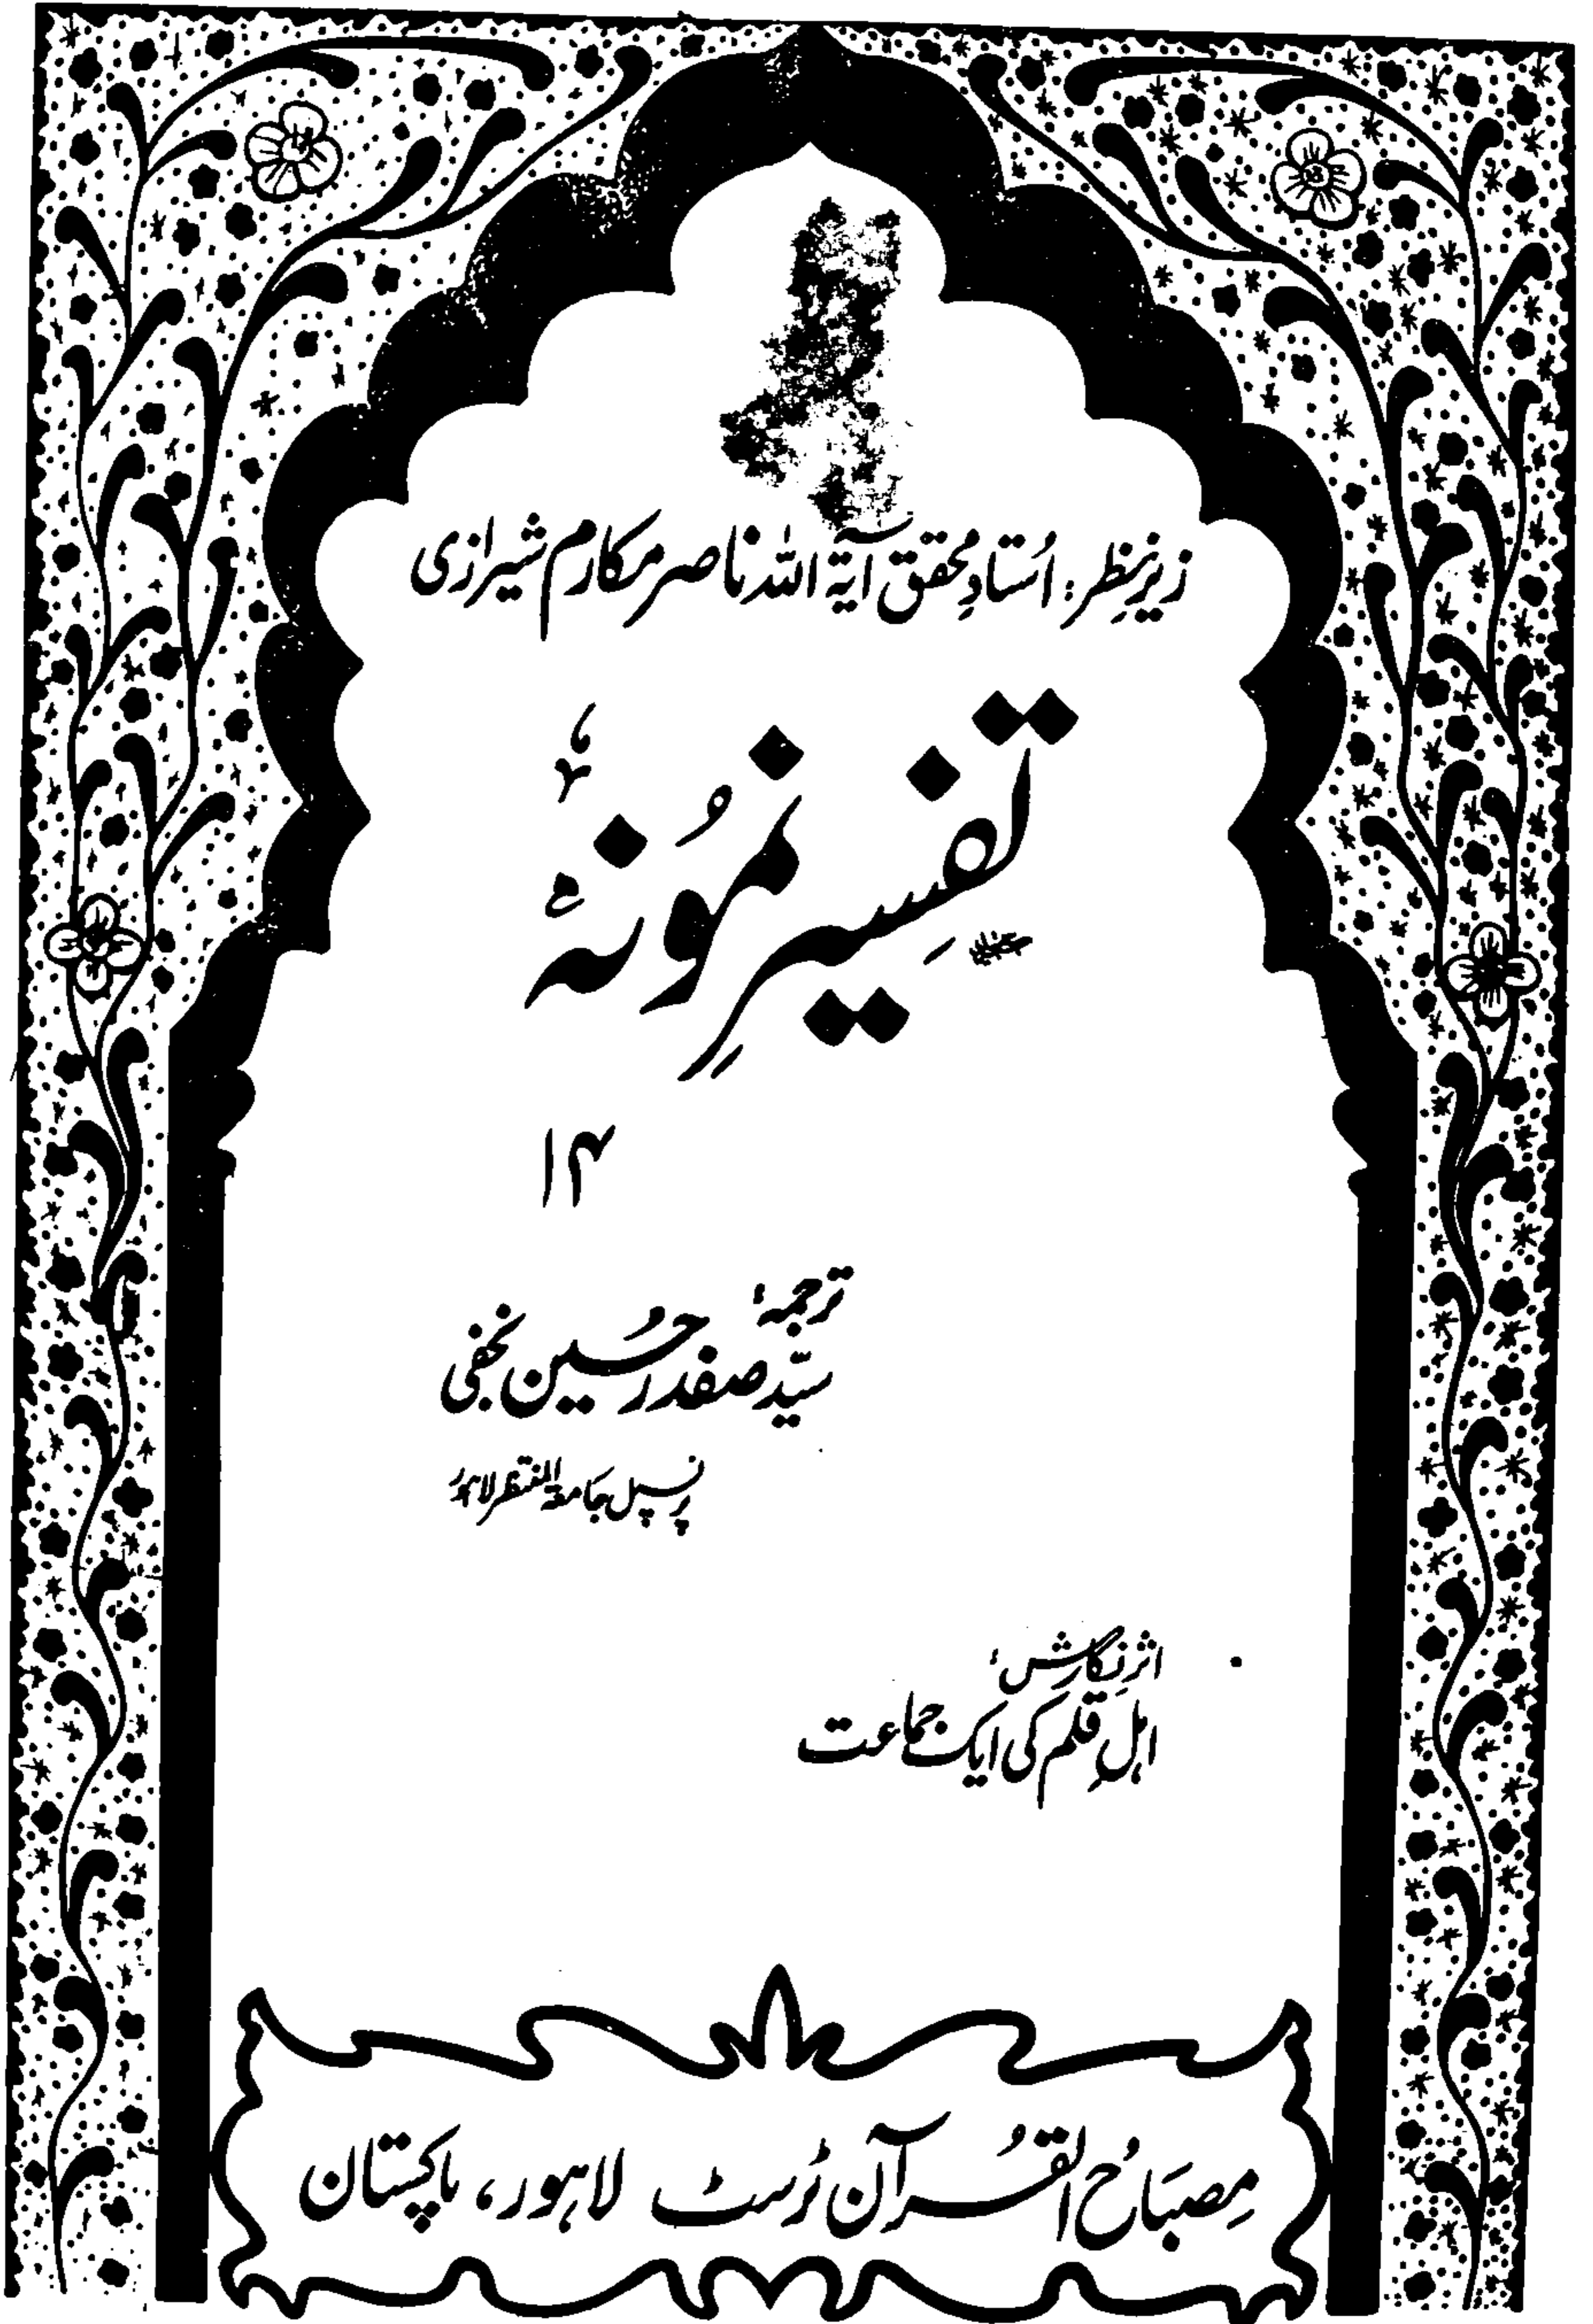 زیرِ نظر: اُستادِ محقق آیۃ اللہ ناصر مکارم شیرازی
تفسیرِ نمُونہ
۱۴
ترجمہ:
سیّد صفدر حُسین نجفی
پرنسپل جامعۃ المنتظر لاہور
اثرِ نگارش:
اہلِ قلم کی ایک جماعت
مِصبَاحُ القُرآن ٹرُسٹ لاہور، پاکستان